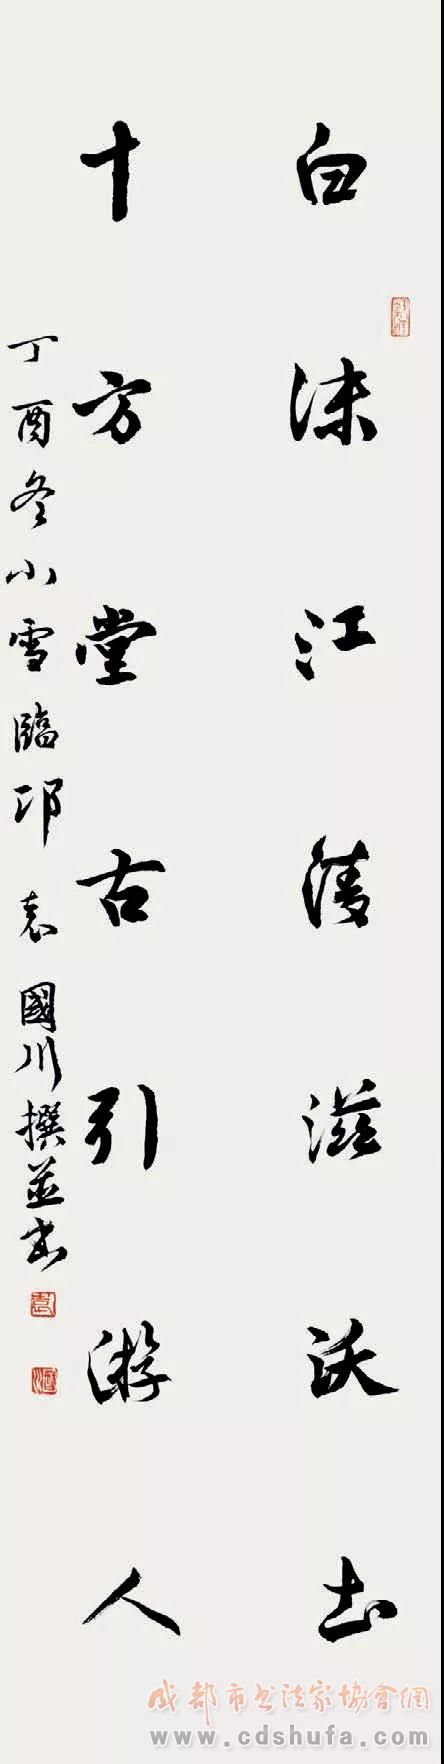 白沫江清滋沃土
十方堂古引游人
丁酉冬小雪臨邛袁國川撰並書
成都市书法家協會網
www.cdshufa.com